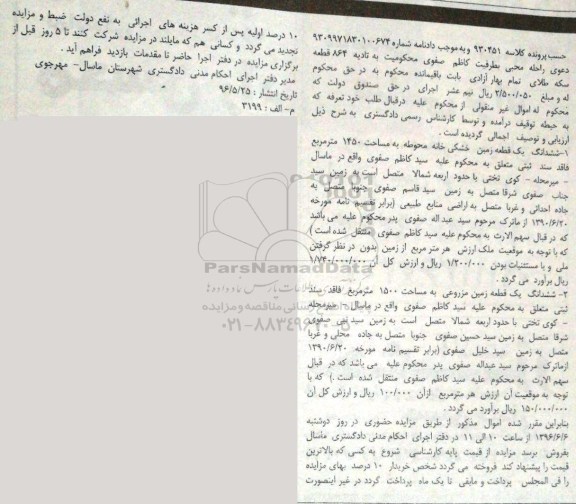 حسب پرونده کلاسه ۹۳۰۴۵۱ و به موجب دادنامه شماره ۹۳۰۹۹۷۱۸۳۰۱۰۰۶۷۴
دعوی راحله محبی بطرفیت کاظم صفوی محکومیت به تادیه ۸۶۴ قطعه
سکه طلای تمام بهار آزادی بابت باقیمانده محکوم به در حق محکوم
له و مبلغ ۲/۵۰۰/۰۵۰ ریال نیم عشر اجرای در حق صندوق دولت که
محکوم له اموال غیر منقولی از محکوم علیه درقبال طلب خود تعرفه که
به حیطه توقیف درآمده و توسط کارشناس رسمی دادگستری به شرح ذیل
ارزیابی و توصیف اجمالی گردیده است .
۱–ششدانگ یک قطعه زمین خشکی خانه محوطه به مساحت ۱۴۵۰ مترمربع
فاقد سند ثبتی متعلق به محکوم علیه سید کاظم صفوی واقع در ماسال
– میرمحله – کوی تختی با حدود اربعه شمالا متصل است به زمین سید
جناب صفوی شرقا متصل به زمین سید قاسم صفوی جنوبا متصل به
جاده احداثی و غربا متصل به اراضی منابع طبیعی (برابر تقسیم نامه مورخه
۱۳۹۰/۶/۲۰ از ماترک مرحوم سید عبد اله صفوی پدر محکوم علیه می باشد
که در قبال سهم الارث به محکوم علیه سید کاظم صفوی منتقل شده است )
که با توجه به موقعیت ملک ارزش هر متر مربع از زمین بدون در نظر گرفتن
ملی و یا مستثنیات بودن ۱/۲۰۰/۰۰۰ ریال و ارزش کل آن ۱/۷۴۰/۰۰۰/۰۰۰
ریال برآورد می گردد .
۲– ششدانگ یک قطعه زمین مزروعی به مساحت ۱۵۰۰ مترمربع فاقد سند
ثبتی متعلق به محکوم علیه سید کاظم صفوی واقع در ماسال – میرمحله
– کوی تختی با حدود اربعه شمالا متصل است به زمین سید نبی صفوی
شرقا متصل به زمین سید حسین صفوی جنوبا متصل به جاده محلی و غربا
متصل به زمین سید خلیل صفوی (برابر تقسیم نامه مورخه ۱۳۹۰/۶/۲۰
ازماترک مرحوم سید عبداله صفوی پدر محکوم علیه می باشد که در قبال
سهم الارث به محکوم علیه سید کاظم صفوی منتقل شده است .) که با
توجه به موقعیت آن ارزش هر مترمربع ازآن ۱۰۰/۰۰۰ ریال و ارزش کل آن
۱۵۰/۰۰۰/۰۰۰ ریال برآورد می گردد .
بنابراین مقرر شده اموال مذکور از طریق مزایده حضوری در روز دوشنبه
۱۳۹۶/۶/۶ از ساعت ۱۰ الی ۱۱ در دفتر اجرای احکام مدنی دادگستری ماسال
بفروش برسد مزایده از قیمت پایه کارشناسی شروع به کسی که بالاترین
قیمت را پیشنهاد کند فروخته می گردد شخص خریدار ۱۰ درصد بهای مزایده
را فی المجلس پرداخت و مابقی تا یک ماه پرداخت گردد در غیر اینصورت
۱۰ درصد اولیه پس از کسر هزینه های اجرائی به نفع دولت ضبط و مزایده
تجدید می گردد و کسانی هم که مایلند در مزایده شرکت کنند تا ۵ روز قبل از
برگزاری مزایده در دفتر اجرا حاضر تا مقدمات بازدید فراهم آید .
مدیر دفتر اجرای احکام مدنی دادگستری شهرستان ماسال– مهرجوی
تاریخ انتشار : ۹۶/۵/۲۵
م– الف : ۳۱۹۹
ParsNamadData
۰۲۱-۸۸۳۴۹۶۷۰-۵